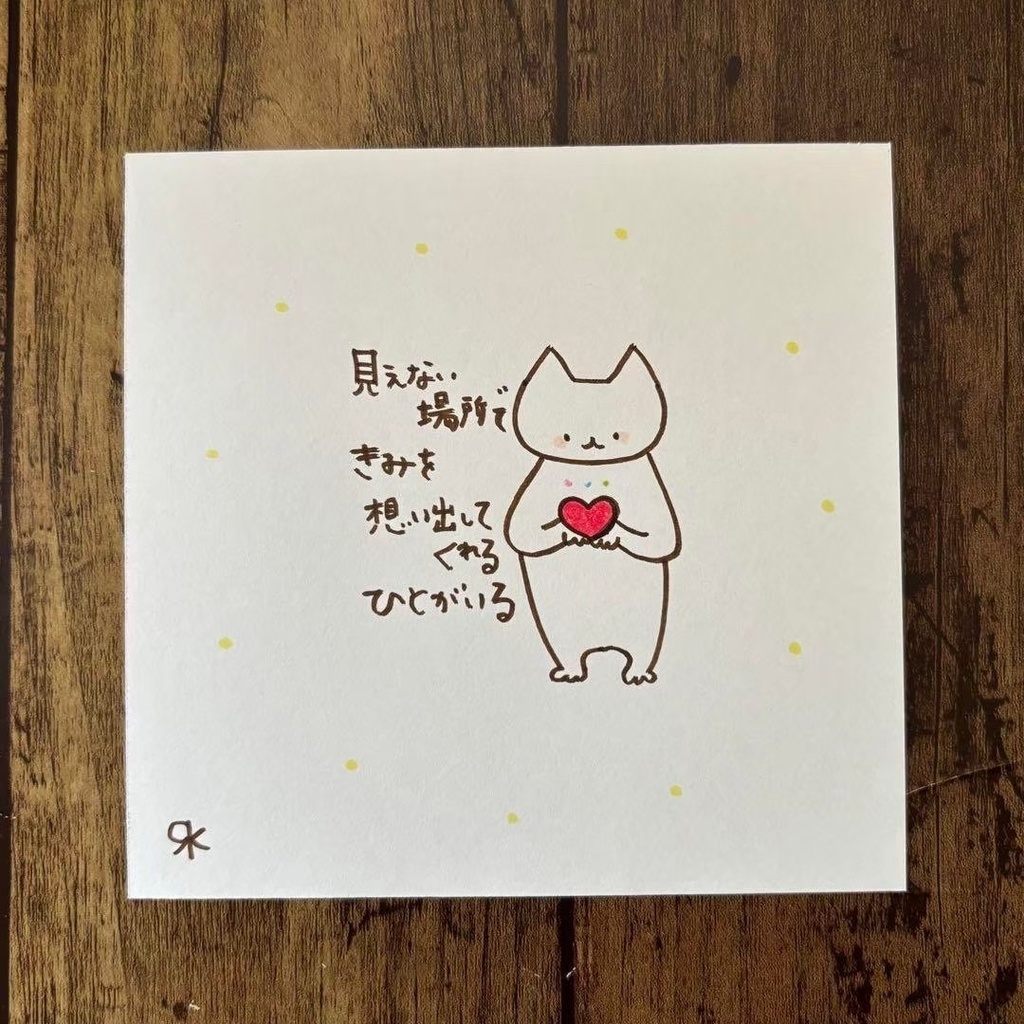 見えない
場所で
きみを
想い出して
くれる
ひとがいる